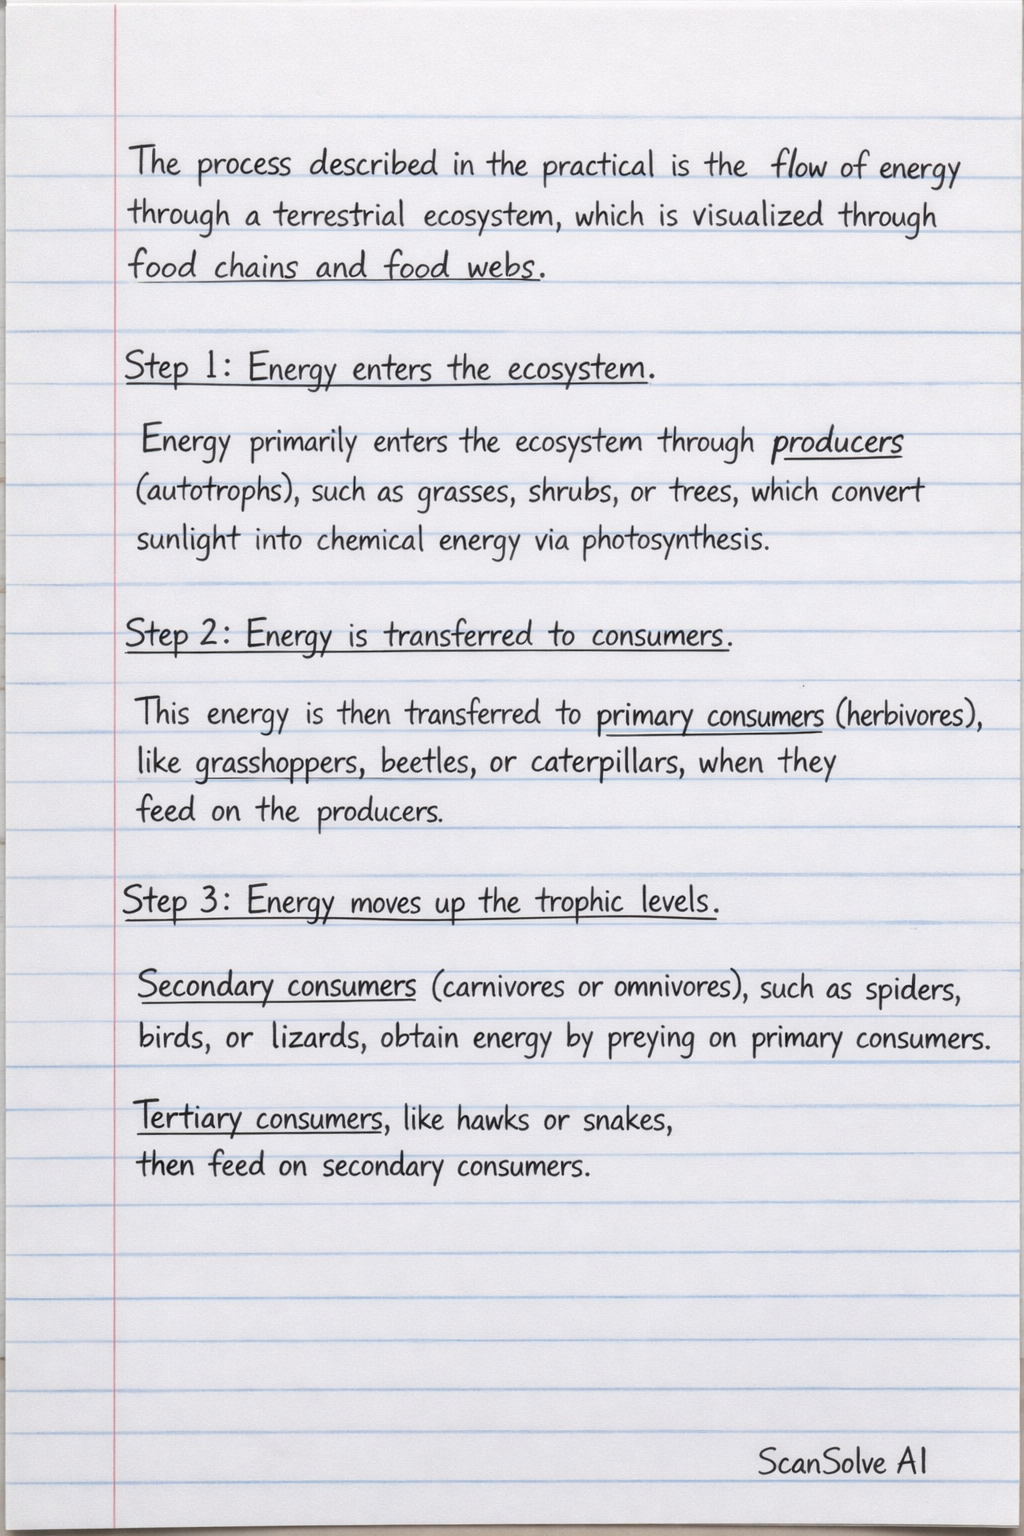 The process described in the practical is the flow of energy
through a terrestrial ecosystem, which is visualized through
food chains and food webs.
Step 1: Energy enters the ecosystem.
Energy primarily enters the ecosystem through producers
(autotrophs), such as grasses, shrubs, or trees, which convert
sunlight into chemical energy via photosynthesis.
Step 2: Energy is transferred to consumers.
This energy is then transferred to primary consumers (herbivores),
like grasshoppers, beetles, or caterpillars, when they
feed on the producers.
Step 3: Energy moves up the trophic levels.
Secondary consumers (carnivores or omnivores), such as spiders,
birds, or lizards, obtain energy by preying on primary consumers.
Tertiary consumers, like hawks or snakes,
then feed on secondary consumers.
ScanSolve AI